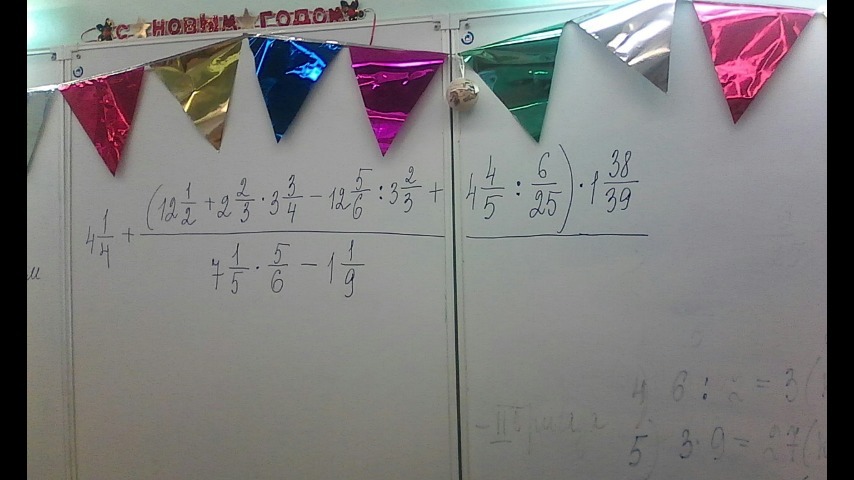 С НОВЫМ ГОДОМ
4 1/4 + ((12 1/2 + 2 2/3 · 3 3/4 − 12 5/6 : 3 2/3 + 4 4/5 : 6/25) · 1 38/39) / (7 1/5 · 5/6 − 1 1/9)
м
4 6 : 2 = 3 (
5 3 · 9 = 27 (